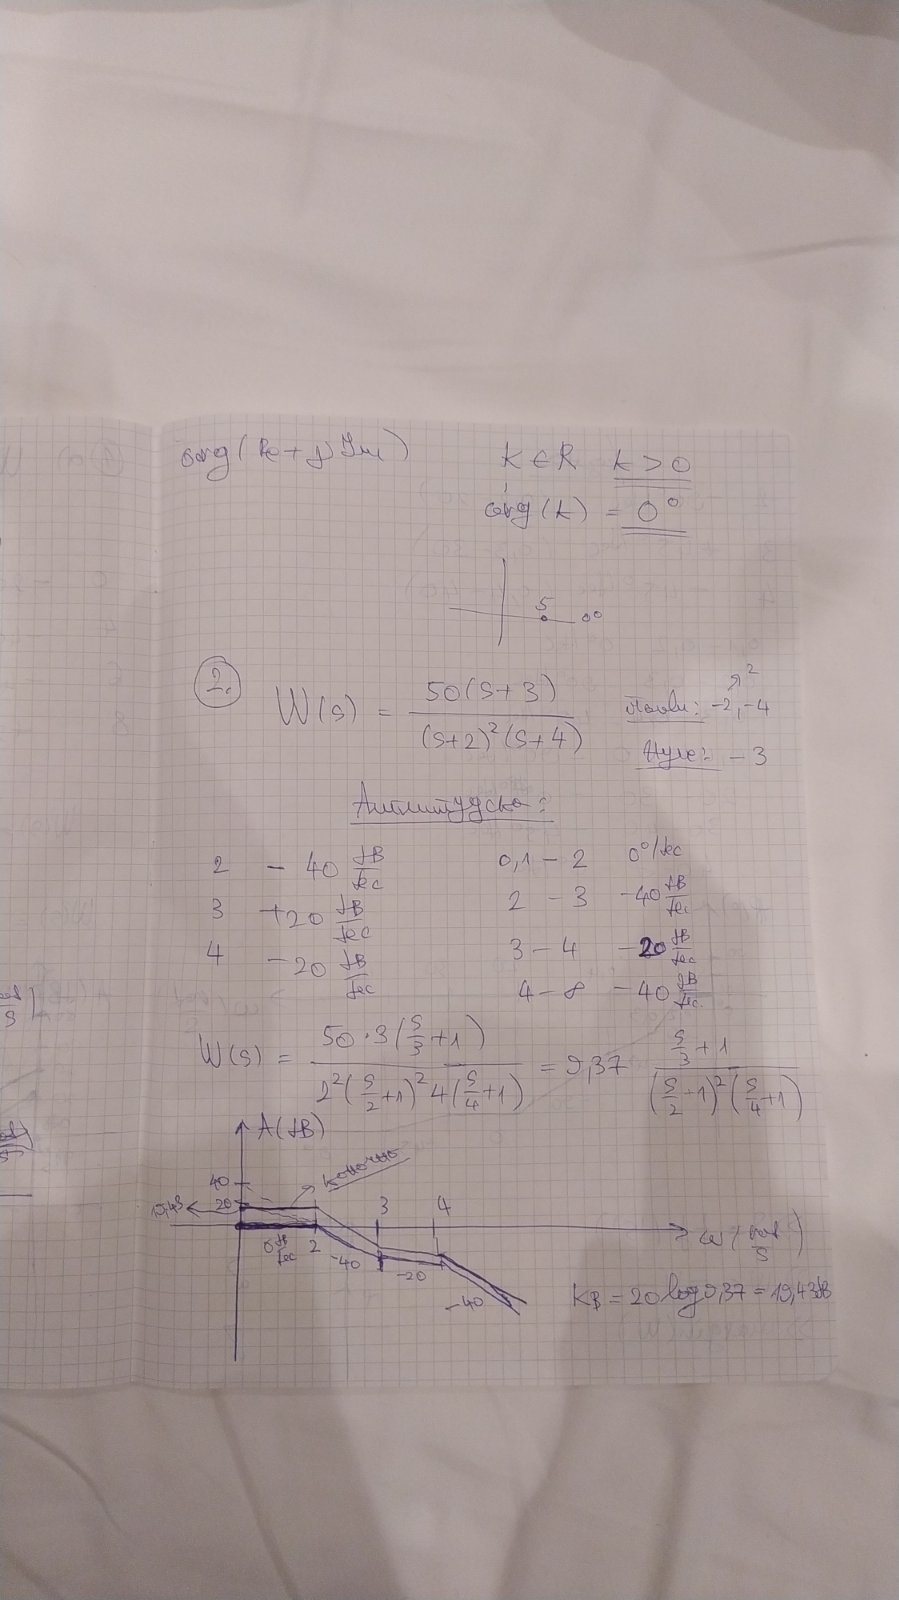 arg(Re + jIm) K ∈ R k > 0
arg(k) = 0°
5 0°
2. W(s) = 50(s+3) / (s+2)²(s+4) Полови: -2, -4
2
Нуле: -3
Амплитудска:
2 -40 dB/dec 0,1 - 2 0°/dec
3 +20 dB/dec 2 - 3 -40 dB/dec
4 -20 dB/dec 3 - 4 -20 dB/dec
4 - ∞ -40 dB/dec
W(s) = 50·3(s/3+1) / 2²(s/2+1)²4(s/4+1) = 9,37 s/3+1 / (s/2+1)²(s/4+1)
A(dB)
40 коначно
20 3 4
19,4dB
ω(rad/s)
0 dB/dec 2 -40 -20
-40 KB = 20log9,37 = 19,43dB